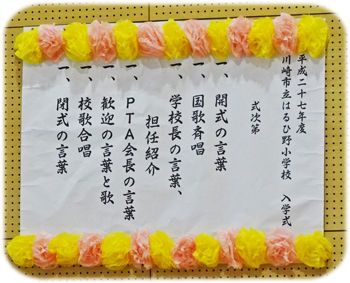 平成二十七年度
川崎市立はるひ野小学校　入学式
式次第
一、開式の言葉
一、国歌斉唱
一、学校長の言葉、
担任紹介
一、ＰＴＡ会長の言葉
一、歓迎の言葉と歌
一、校歌合唱
一、閉式の言葉